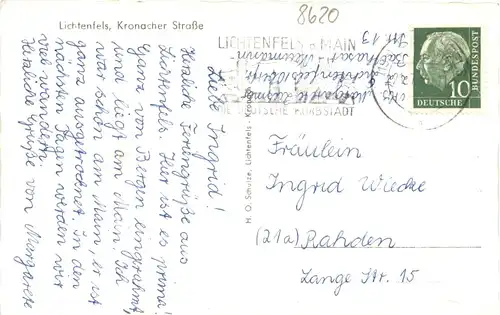 Lichtenfels, Kronacher Straße
8620
Liebe Ingrid!
Herzliche Feriengrüße aus
Lichtenfels. Hier ist es prima!
Ganz von Bergen eingerahmt,
und liegt am Main. Ich
war schon am Main, er ist
ganz ausgetrocknet. In den
nächsten Tagen werden wir
viel wandern.
Herzliche Grüße von Margarete
H. O. Schulze, Lichtenfels
LICHTENFELS a MAIN
DIE DEUTSCHE KORBSTADT
Margarete
Lichtenfels
Balthasar-Neumann-
Str. 13
DEUTSCHE
BUNDESPOST
10
Fräulein
Ingrid Wiecke
(21a) Rahden
Lange Str. 15